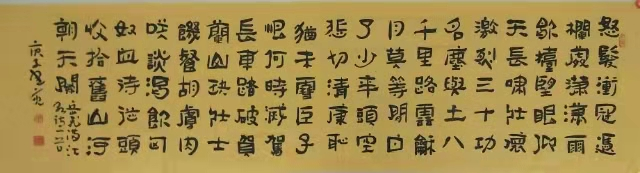 怒髮衝冠憑
欄處瀟瀟雨
歇擡望眼仰
天長嘯壯懷
激烈三十功
名塵與土八
千里路雲龢
月莫等閒白
了少年頭空
悲切靖康恥
猶未雪臣子
恨何時滅駕
長車踏破賀
蘭山缺壯士
饑餐胡虜肉
笑談渴飲匈
奴血待從頭
收拾舊山河
朝天闕
岳飛滿江
庚子